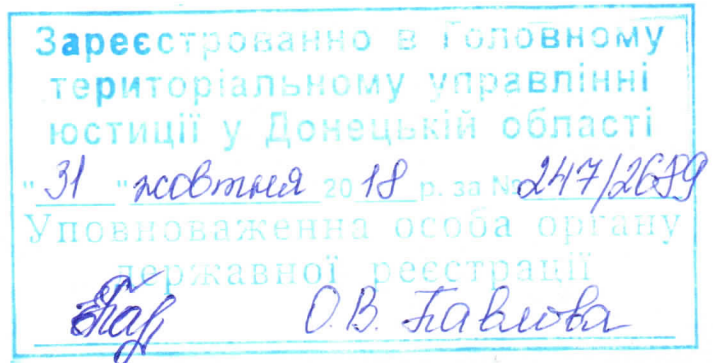 Зареєстрованно в Головному
територіальному управлінні
юстиції у Донецькій області
"31" жовтня 2018 р. за № 247/2689
Уповноваженна особа органу
державної реєстрації
О.В. Павлова